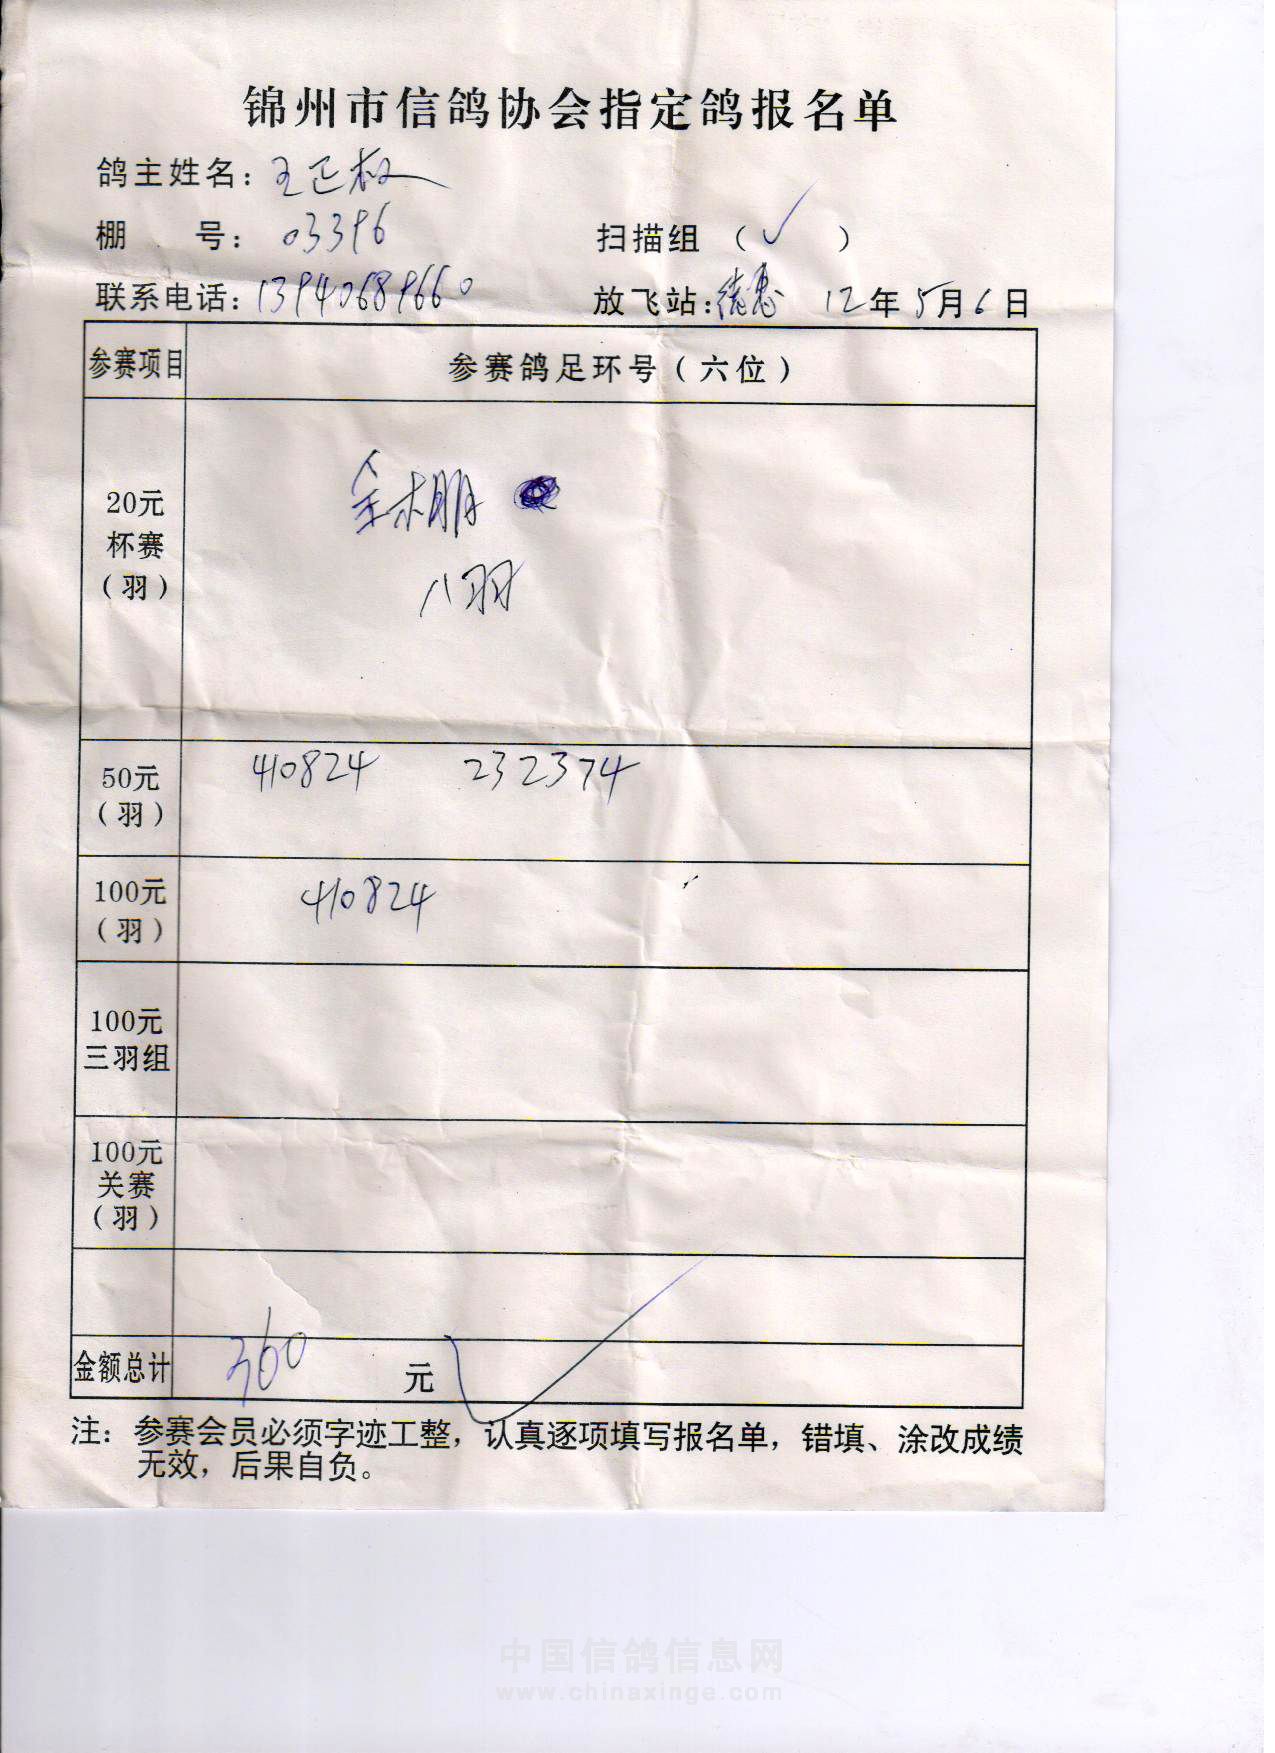 锦州市信鸽协会指定鸽报名单
鸽主姓名：王正权
棚 号：03396 扫描组（✓）
联系电话：13940689660 放飞站：德惠 12年5月6日
参赛项目 参赛鸽足环号（六位）
20元
杯赛
（羽）
全棚
八羽
50元
（羽）
410824 232374
100元
（羽）
410824
100元
三羽组
100元
关赛
（羽）
金额总计 360 元
注：参赛会员必须字迹工整，认真逐项填写报名单，错填、涂改成绩
无效，后果自负。
中国信鸽信息网
www.chinaxinge.com